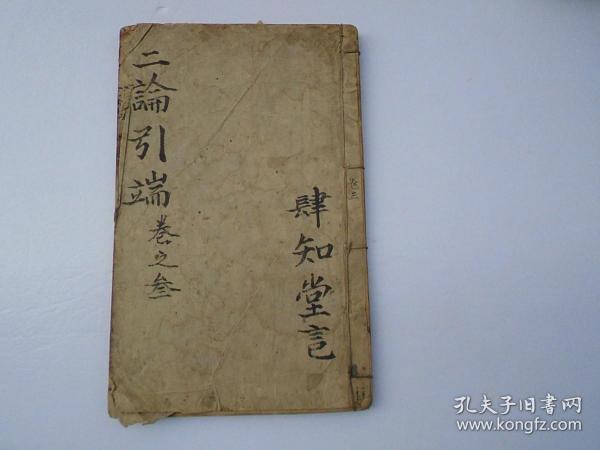 二論引端卷之叁
肆知堂言
卷三
孔夫子旧书网
www.kongfz.com